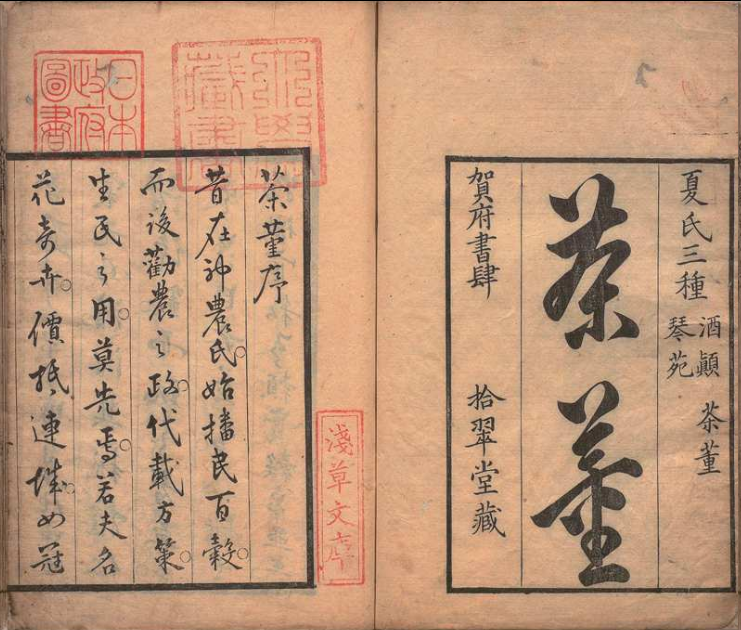 夏氏三種
酒顛
琴苑
茶董
茶董
賀府書肆
拾翠堂藏
茶董序
昔在神農氏。始播民百穀。
而後勸農之政。代載方策。
生民之用。莫先焉。若夫名
花奇卉。價抵連城。如冠
藏書
日本
政府
圖書
淺草文庫